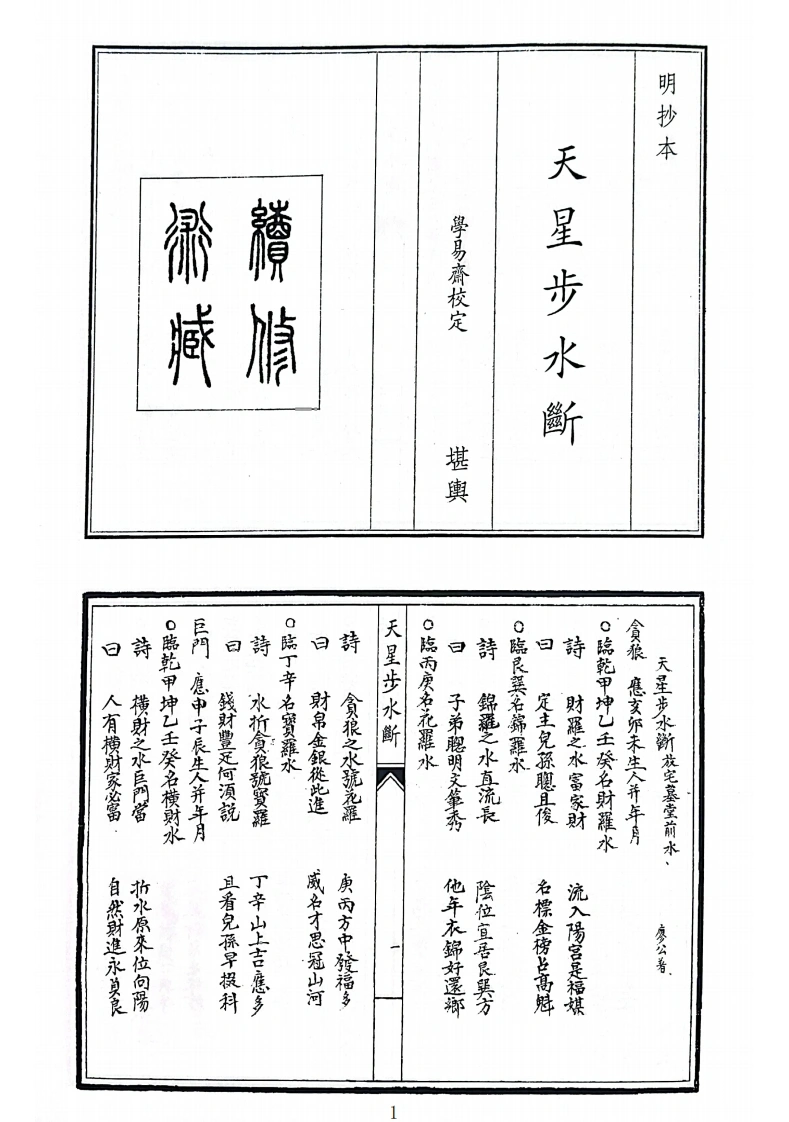 明抄本
天星步水斷
學易齋校定 堪輿
續修
術藏
天星步水斷放宅墓堂前水、 廖公著
貪狼 應亥卯未生人并年月
○臨乾甲坤乙壬癸名財羅水
詩 財羅之水富家財 流入陽宮是福媒
曰 定主兒孫聰且俊 名標金榜占高魁
○臨艮巽名錦羅水
詩 錦羅之水直流長 陰位宜居艮巽方
曰 子弟聰明文筆秀 他年衣錦好還鄉
○臨丙庚名花羅水
天星步水斷 一
詩 貪狼之水號花羅 庚丙方中發福多
曰 財帛金銀從此進 威名才思冠山河
○臨丁辛名寶羅水
詩 水折貪狼號寶羅 丁辛山上吉應多
曰 錢財豐足何須說 且看兒孫早掇科
巨門 應申子辰生人并年月
○臨乾甲坤乙壬癸名橫財水
詩 橫財之水巨門當 折水原來位向陽
曰 人有橫財家必富 自然財進永貞良
1